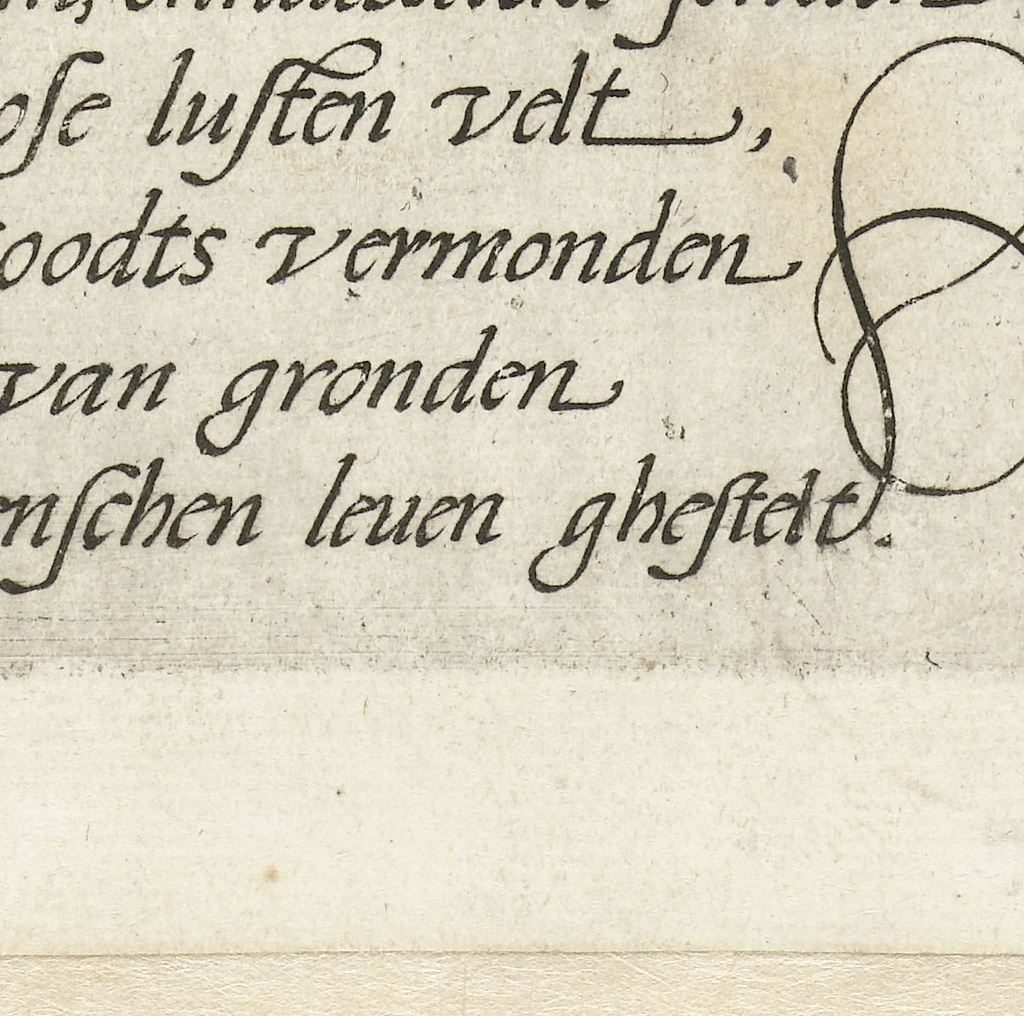 ose lusten velt,
oodts vermonden
van gronden
enschen leuen ghestelt.